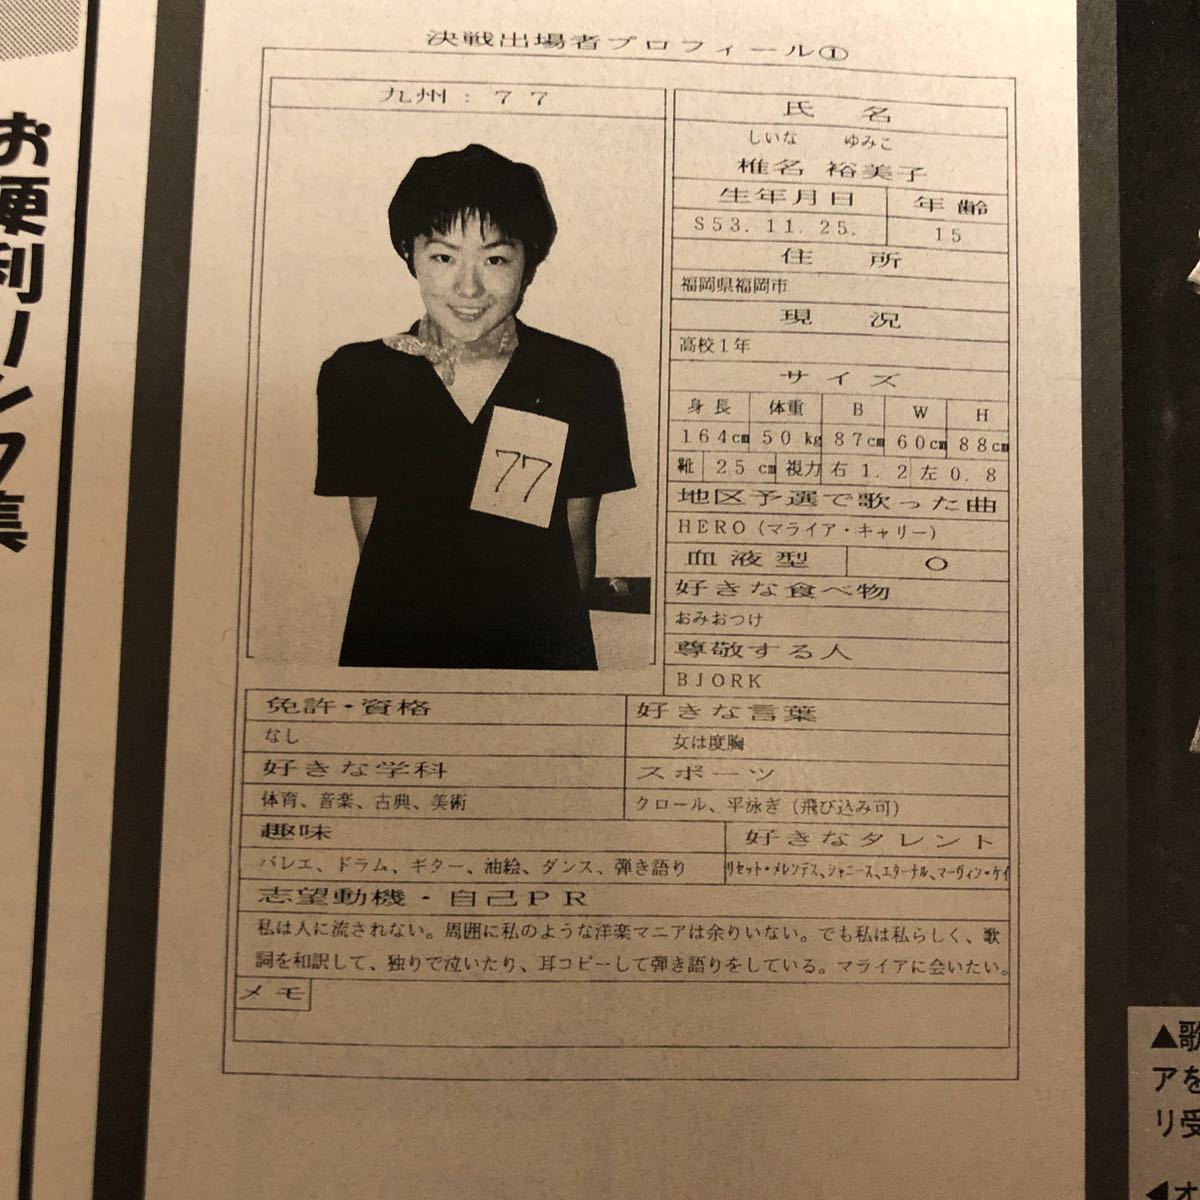 お便利リンク集
決戦出場者プロフィール①
九州：77
77
氏 名
しいな ゆみこ
椎名 裕美子
生年月日 年齢
S53.11.25. 15
住 所
福岡県福岡市
現 況
高校1年
サイズ
身長 体重 B W H
164cm 50kg 87cm 60cm 88cm
靴 25cm 視力 右1.2 左0.8
地区予選で歌った曲
HERO（マライア・キャリー）
血液型 O
好きな食べ物
おみおつけ
尊敬する人
BJORK
免許・資格 好きな言葉
なし 女は度胸
好きな学科 スポーツ
体育、音楽、古典、美術 クロール、平泳ぎ（飛び込み可）
趣味 好きなタレント
バレエ、ドラム、ギター、油絵、ダンス、弾き語り リセット・メレンデス、シャニース、エターナル、マーヴィン・ゲイ
志望動機・自己PR
私は人に流されない。周囲に私のような洋楽マニアは余りいない。でも私は私らしく、歌
詞を和訳して、独りで泣いたり、耳コピーして弾き語りをしている。マライアに会いたい。
メモ
▲歌
アを
リ受